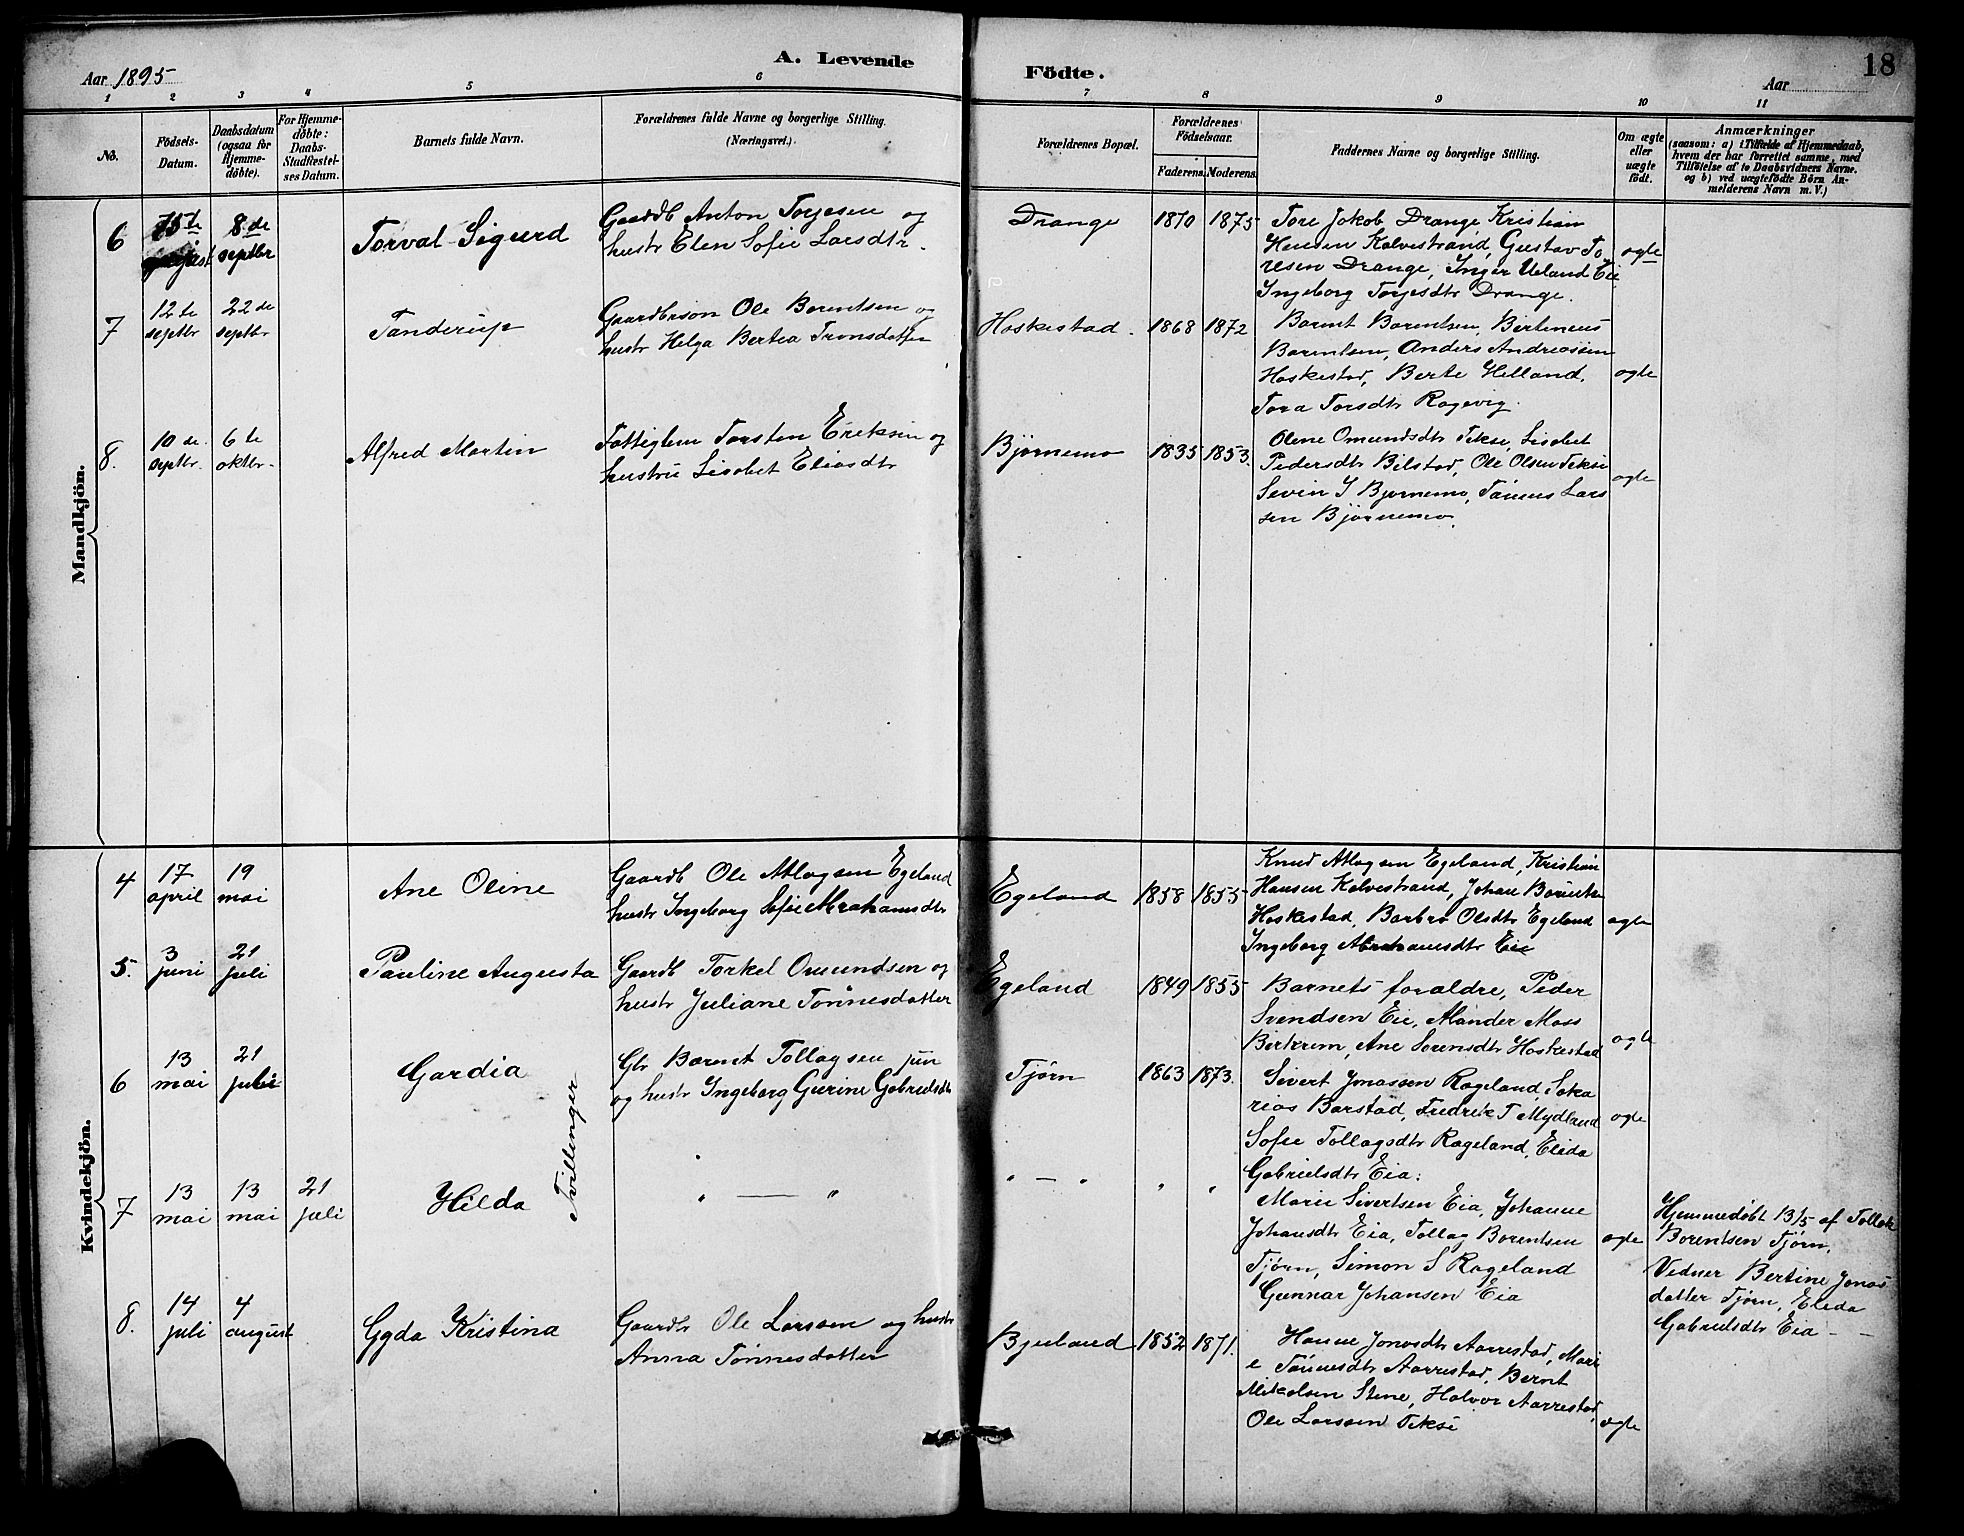 Aar 1895
A. Levende
Födte.
Aar
18
1 2 3 4 5 6 7 8 9 10 11
No.
Födsels-
Datum.
Daabsdatum
(ogsaa for
Hjemme-
döbte).
For Hjemme-
döbte:
Daabs-
Stadfæstel-
ses Datum.
Barnets fulde Navn.
Forældrenes fulde Navne og borgerlige Stilling.
(Næringsvei.)
Forældrenes Bopæl.
Forældrenes
Födselsaar.
Faderens. Moderens.
Faddernes Navne og borgerlige Stilling.
Om ægte
eller
uægte
födt.
Anmærkninger
(saasom: a) i Tilfælde af Hjemmedaab,
hvem der har forrettet samme, med
Tilföielse af to Daabsvidners Navne.
og b) ved uægtefödte Börn An-
melderens Navn m. V.)
Mandkjön.
6
8 de
septbr
Torval Sigurd
Gaardb Anton Torjesen og
hustr Elen Sofie Larsdtr.
Drange
1870 1875
Tore Jakob Drange Kristian
Hansen Kalvestrand, Gustav To
resen Drange, Inger Ueland Eie
Ingeborg Torjesdtr Drange.
ægte
7
12 te
septbr
22 de
septbr
Tanderup
Gaardbrson Ole Berentsen og
hustr Helga Bertea Tronsdatter
Hoskestad.
1868 1872
Barnt Barentsen, Bertineus
Barentsen, Anders Andreassen
Hoskestad, Berte Helland,
Tora Torsdtr Ragevig.
ægte
8.
10 de
septbr.
6 te
oktbr.
Alfred Martin
Fattiglem Torsten Eriksen og
hustru Lisabet Eliasdtr
Bjørnemo
1835 1853.
Olene Omundsdtr Tekse, Lisabet
Pedersdtr Bilstad, Ole Olsen Tekse
Sevin I Bjørnemo, Tønnes Lars
sen Bjørnemo.
ægte
Kvindekjön.
4
17
april
19
mai
Ane Oline
Gaardb Ole Atlagsen Egeland
hustr Ingeborg Sofie Abrahamsdtr
Egeland
1858 1855
Knud Atlagsen Egeland, Kristian
Hansen Kalvestrand, Johan Barentsen
Hoskestad, Barbro Olsdtr Egeland
Ingeborg Abrahamsdtr Eie
ægte
5.
3
juni
21
juli
Pauline Augusta
Gaardb Torkel Omundsen og
hustr Juliane Tønnesdatter
Egeland
1849 1855
Barnets forældre, Peder
Svendsen Eie, Mander Moss
Birkrem, Ane Sørensdtr Hoskestad
ægte
6
13
mai
21
juli
Gardia
Gbr Barnt Tollagsen jun
og hustr Ingeborg Gurine Gabrielsdtr
Tjørn
1863 1873.
Sivert Jonassen Rageland, Saka
rias Barstad, Fredrik T Mydland
Sofie Tollagsdtr Rageland, Elida
Gabrielsdtr Eia.
ægte
Tvillinger
7
13
mai
13
mai
21
juli
Hilda
" — "
" — " " "
Marie Sivertsen Eia, Johanne
Johansdtr Eia, Tollag Barentsen
Tjørn, Simon S Rageland
Gunnar Johansen Eia
ægte
Hjemmedøbt 13/5 af Tollak
Borentsen Tjørn.
Vidner Bertine Jonas
datter Tjørn, Elida
Gabrielsdtr Eia —
8.
14
juli
4
august
Gyda Kristina
Gaardbr Ole Larssen og hustr
Anna Tønnesdatter
Bjuland
1852 1871.
Hanne Jonasdtr Aarrestad, Mari
e Tønnesdtr Aarrestad, Bernt
Mikalsen Stene, Halvor Aarrestad,
Ole Larssen Tekse
ægte